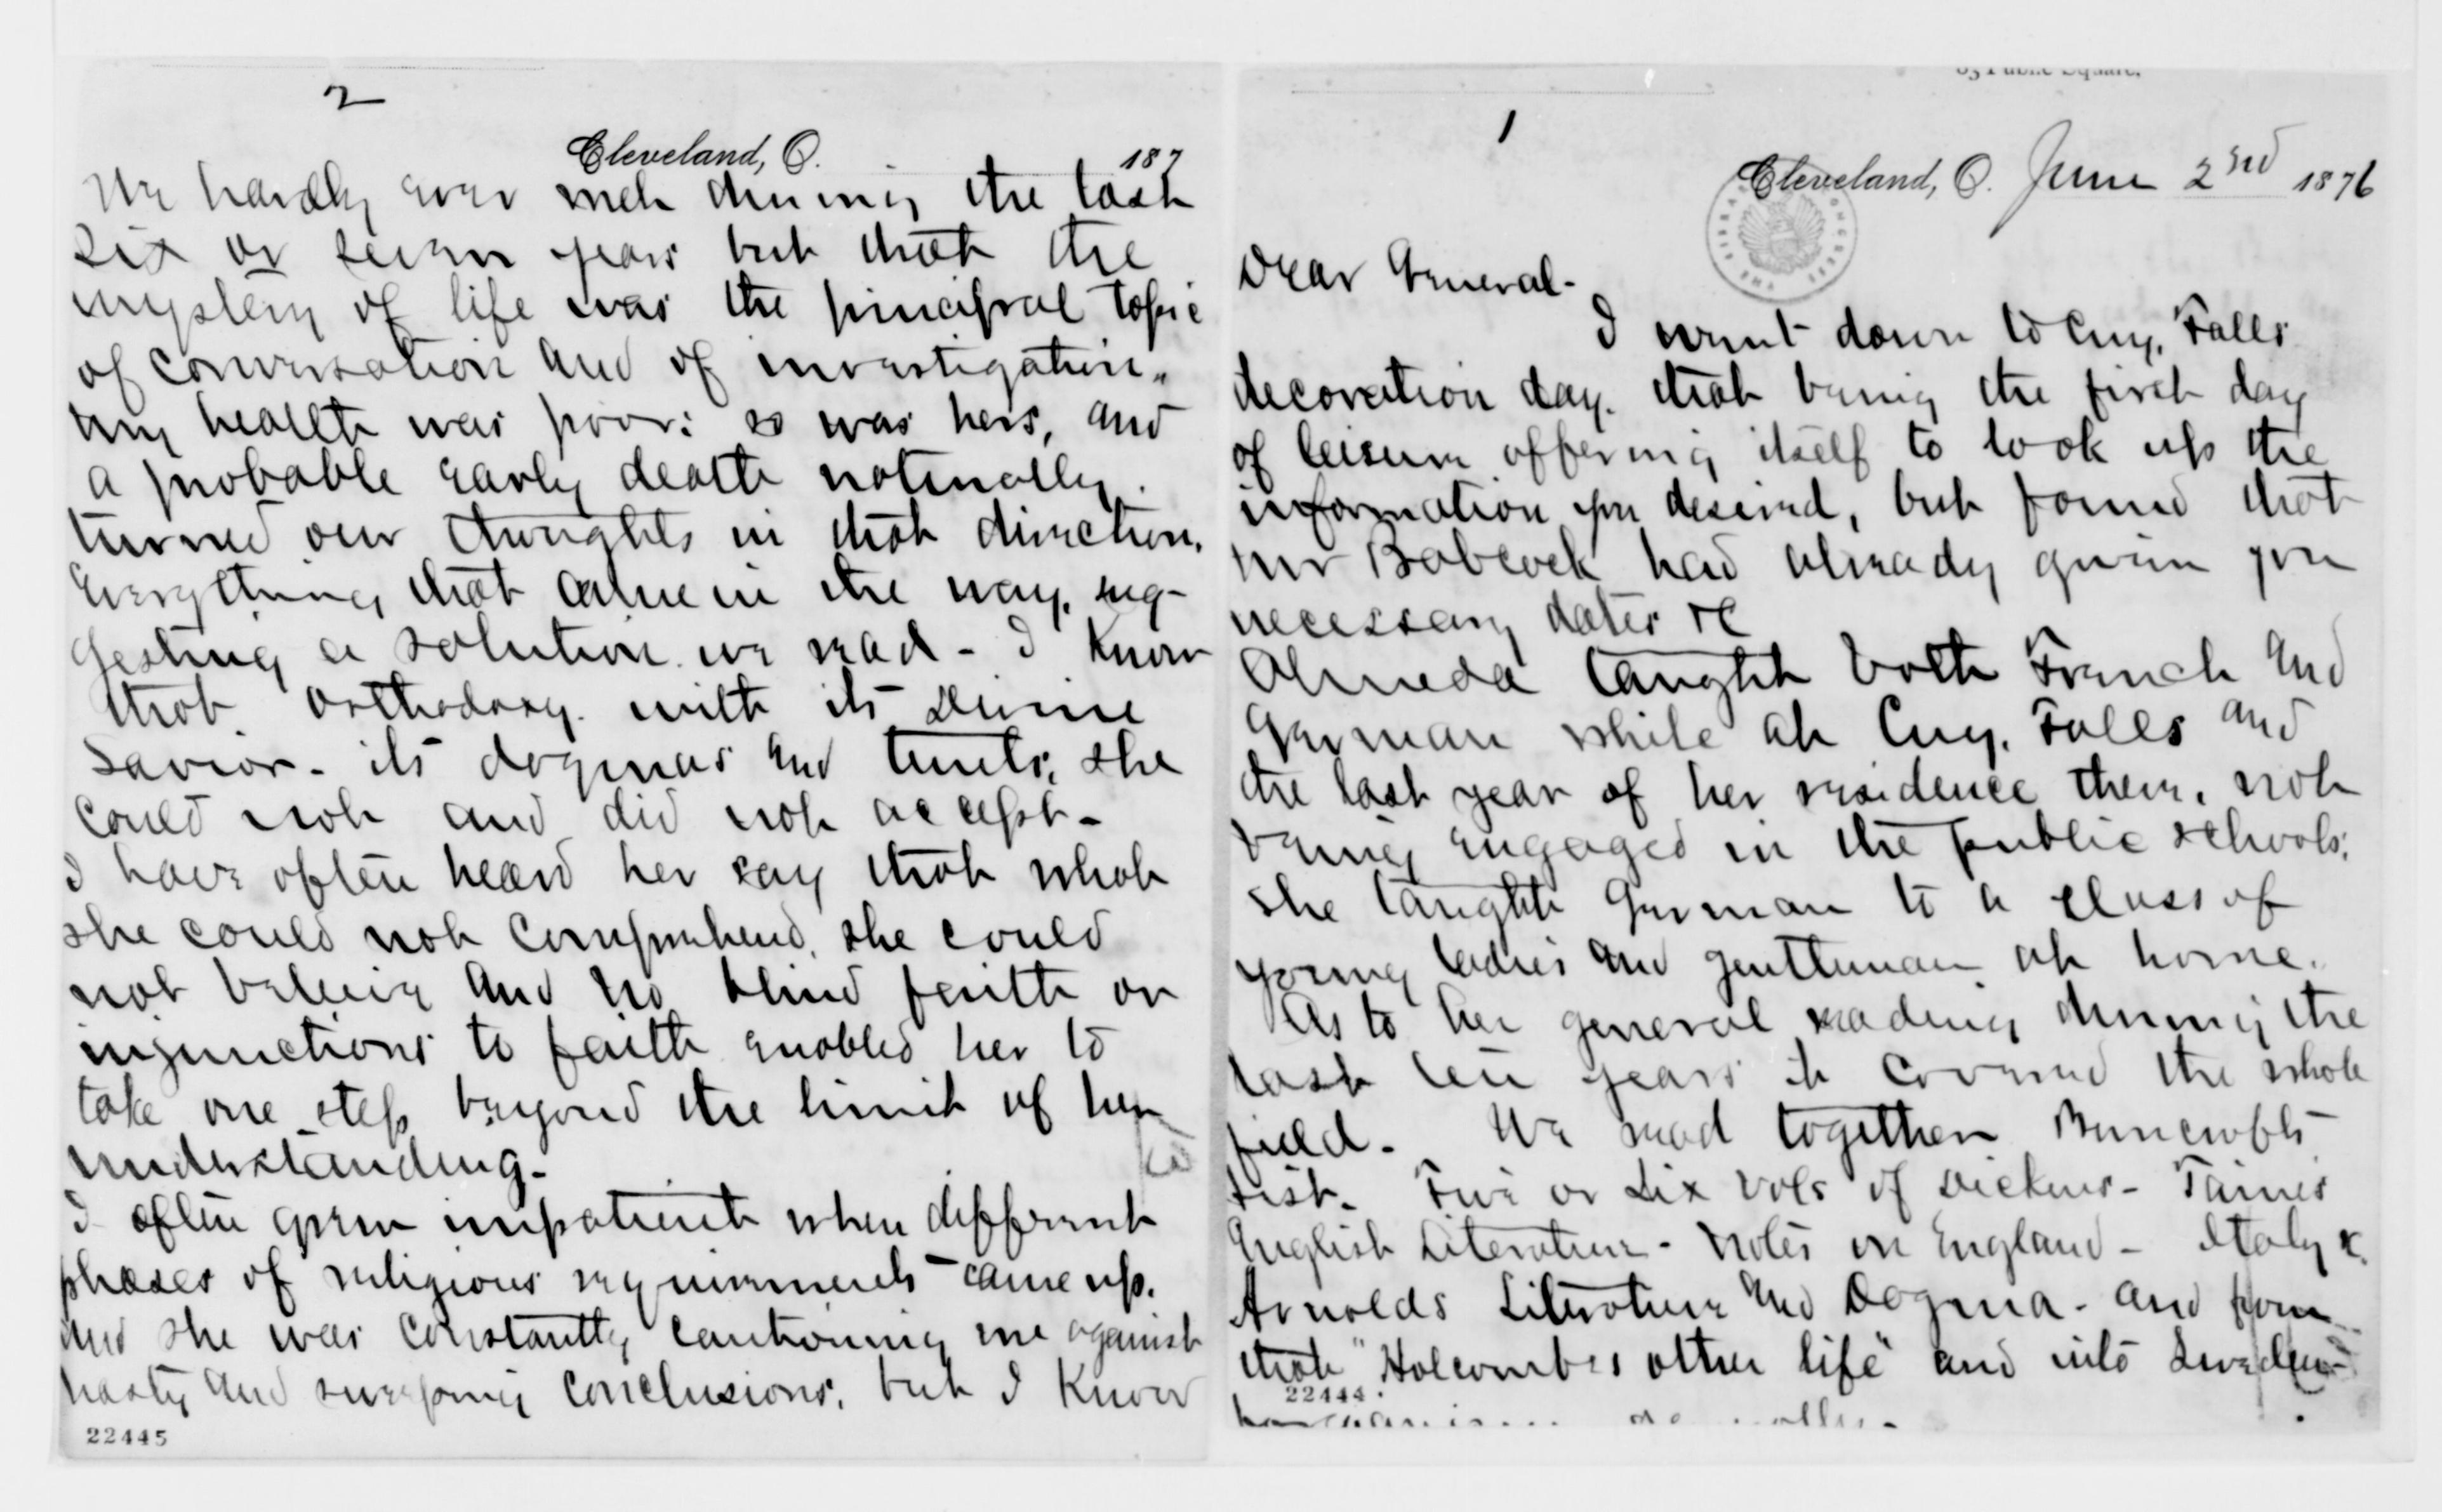 1
Cleveland, O. June 2nd 1876
Dear General-
I went down to Cuy. Falls
decoration day. that being the first day
of leisure offering itself to look up the
information you desired, but found that
Mr Babcock had already given you
necessary dates &c
Almeda taught both French and
German while at Cuy. Falls and
the last year of her residence there, not
being engaged in the public schools;
she taught German to a class of
young ladies and gentleman at home.
As to her general reading during the
last ten years it covered the whole
field. We read together Bancrofts
Hist. Five or Six vols of Dickens - Taines
English Literature - Notes on England - Italy &.
Arnolds Literature and Dogma - and from
that "Holcombes other life" and into Sweden-
22444
2
Cleveland, O. 187
We hardly ever met during the last
six or seven years but that the
mystery of life was the principal topic
of conversation and of investigation.
My health was poor: so was hers, and
a probable early death naturally
turned our thoughts in that direction.
Everything that came in the way, sug-
gesting a solution we read - I know
that orthodoxy. with its Divine
Savior - its dogmas and tenets, she
could not and did not accept -
I have often heard her say that what
she could not comprehend, she could
not believe and no blind faith or
injunctions to faith enabled her to
take one step beyond the limit of her
understanding -
I often grew impatient when different
phases of religious requirements came up.
and she was constantly cautioning me against
hasty and sweeping conclusions, but I know
22445